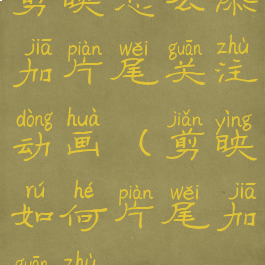 剪映怎么添
jiā piàn wěi guān zhù
加片尾关注
dòng huà jiǎn yìng
动画（剪映
rú hé piàn wěi jiā
如何片尾加
guān zhù